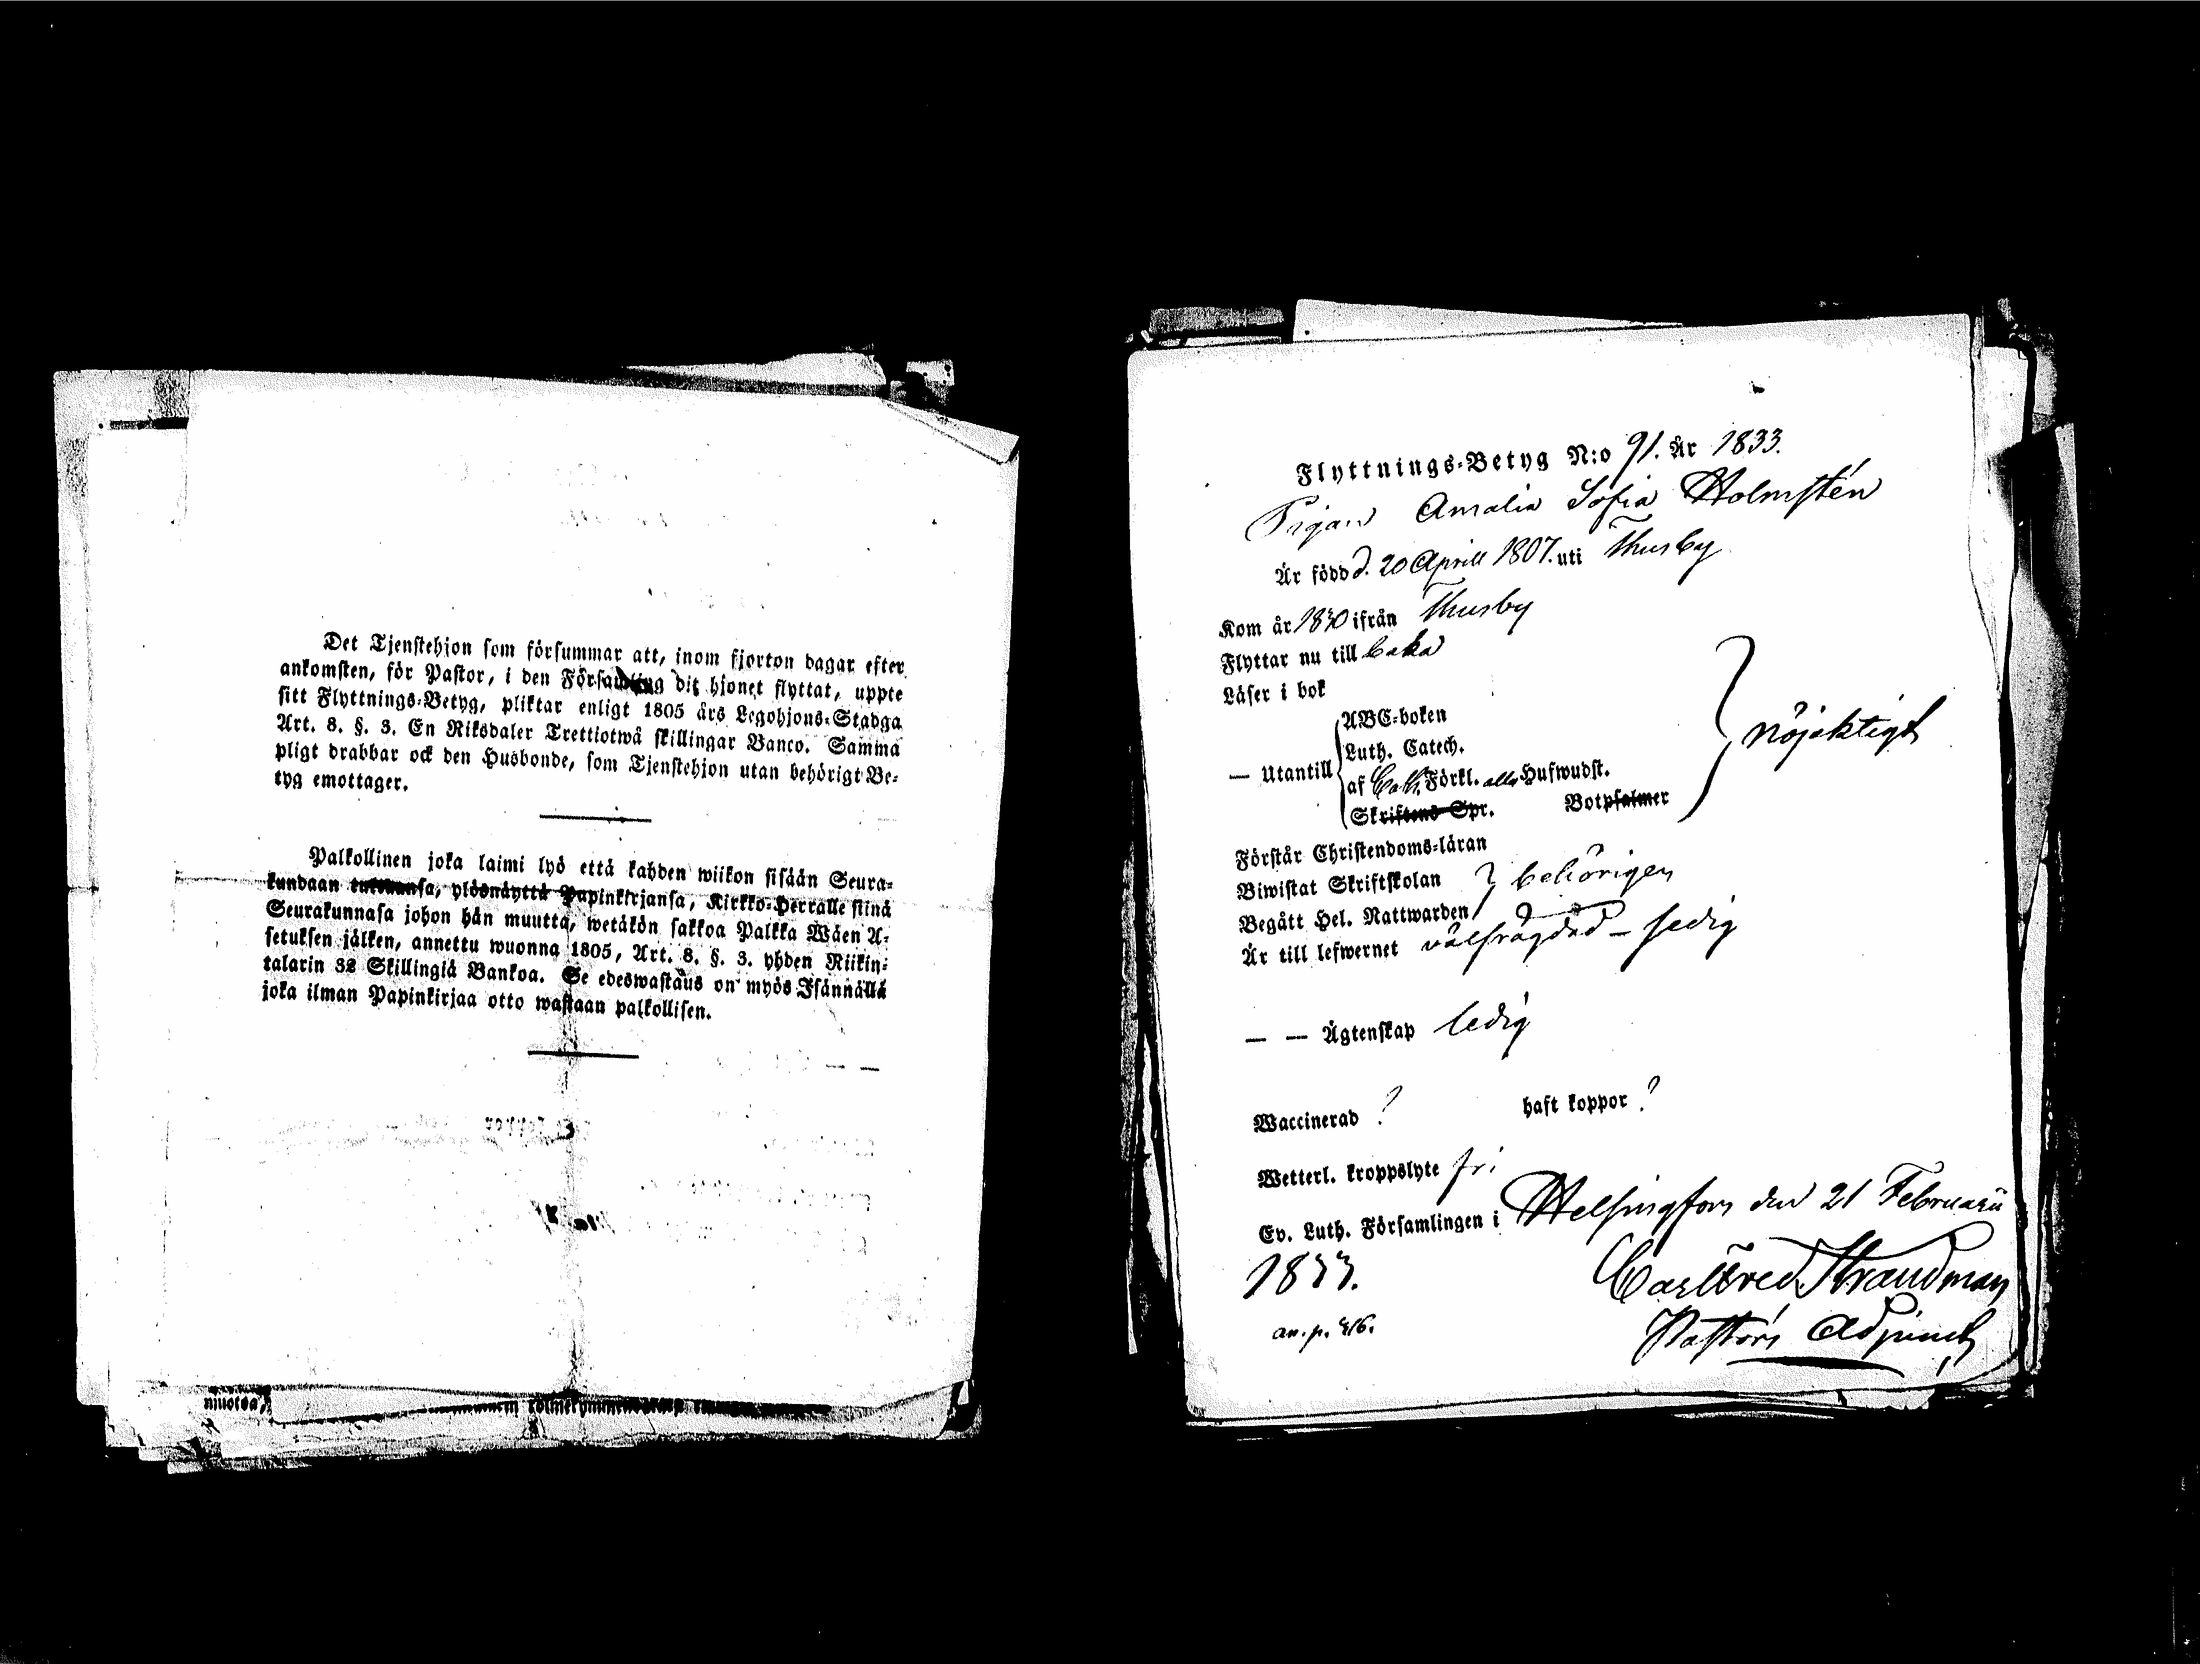 Det Tjenstehjon som försummar att, inom fjorton dagar efter
ankomsten, för Pastor, i den Församling dit hjonet flyttat, uppte
sitt Flyttnings-Betyg, pliktar enligt 1805 års Legohjons-Stadga
Art. 8. §. 3. En Riksdaler Trettiotwå skillingar Banco. Samma
pligt drabbar ock den Husbonde, som Tjenstehjon utan behörigt Be-
tyg emottager.
Palkollinen joka laimi lyö että kahden wiikon sisään Seura-
kundaan tultuansa, ylösnäyttä Papinkirjansa, Kirkko-Herralle siinä
Seurakunnasa johon hän muutta, wetäkön sakkoa Palkka Wäen A-
setuksen jälken, annettu wuonna 1805, Art. 8. §. 3. yhden Riikin-
talarin 32 Skillingiä Bankoa. Se edeswastaus on myös Isännällä
joka ilman Papinkirjaa otto wastaan palkollisen.
Flyttnings-Betyg N:o 91. År 1833.
Pigan Amalia Sofia Holmstén
Är född d. 20 Aprill 1807. uti Thusby
Kom år 1830 ifrån Thusby
Flyttar nu till baka
Läser i bok
ABC-boken
Luth. Catech.
— Utantill
af Cath. Förkl. alla Hufwudst.
Skriftens Spr. Botpsalmer
nöjaktigt
Förstår Christendoms-läran
Biwistat Skriftskolan
behörigen
Begått Hel. Nattwarden
Är till lefwernet välfrägdad - sedig
— — Ägtenskap ledig
Waccinerad ? haft koppor ?
Wetterl. kroppslyte fri
Ev. Luth. Församlingen i Helsingfors den 21 Februarii
1833.
Carl Fred. Strandman
Pastors Adjunct